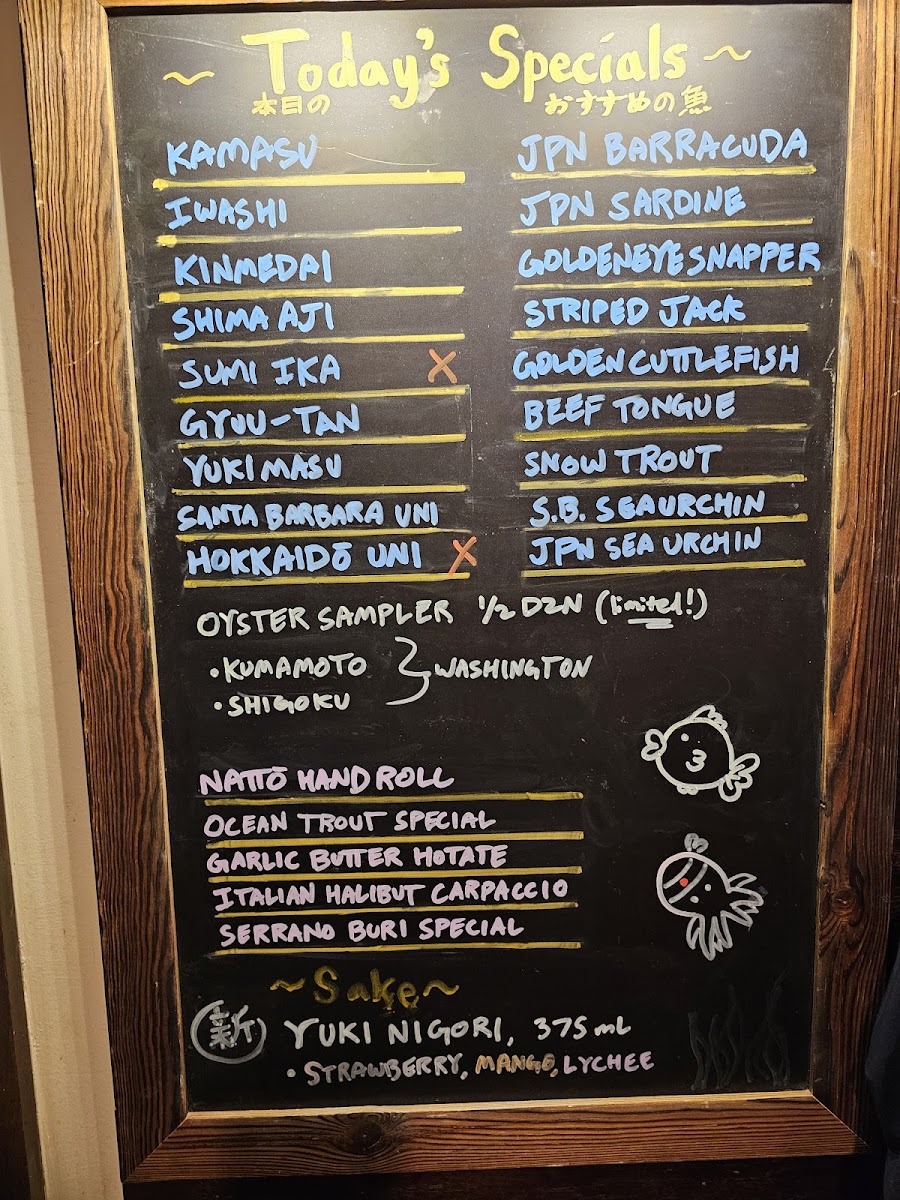 ~ Today's Specials ~
本日の おすすめの魚
KAMASU JPN BARRACUDA
IWASHI JPN SARDINE
KINMEDAI GOLDENEYE SNAPPER
SHIMA AJI STRIPED JACK
SUMI IKA X GOLDEN CUTTLEFISH
GYUU-TAN BEEF TONGUE
YUKI MASU SNOW TROUT
SANTA BARBARA UNI S.B. SEA URCHIN
HOKKAIDŌ UNI X JPN SEA URCHIN
OYSTER SAMPLER 1/2 DZN (limited!)
• KUMAMOTO } WASHINGTON
• SHIGOKU
NATTŌ HAND ROLL
OCEAN TROUT SPECIAL
GARLIC BUTTER HOTATE
ITALIAN HALIBUT CARPACCIO
SERRANO BURI SPECIAL
~ Sake ~
新 YUKI NIGORI, 375 mL
• STRAWBERRY, MANGO, LYCHEE